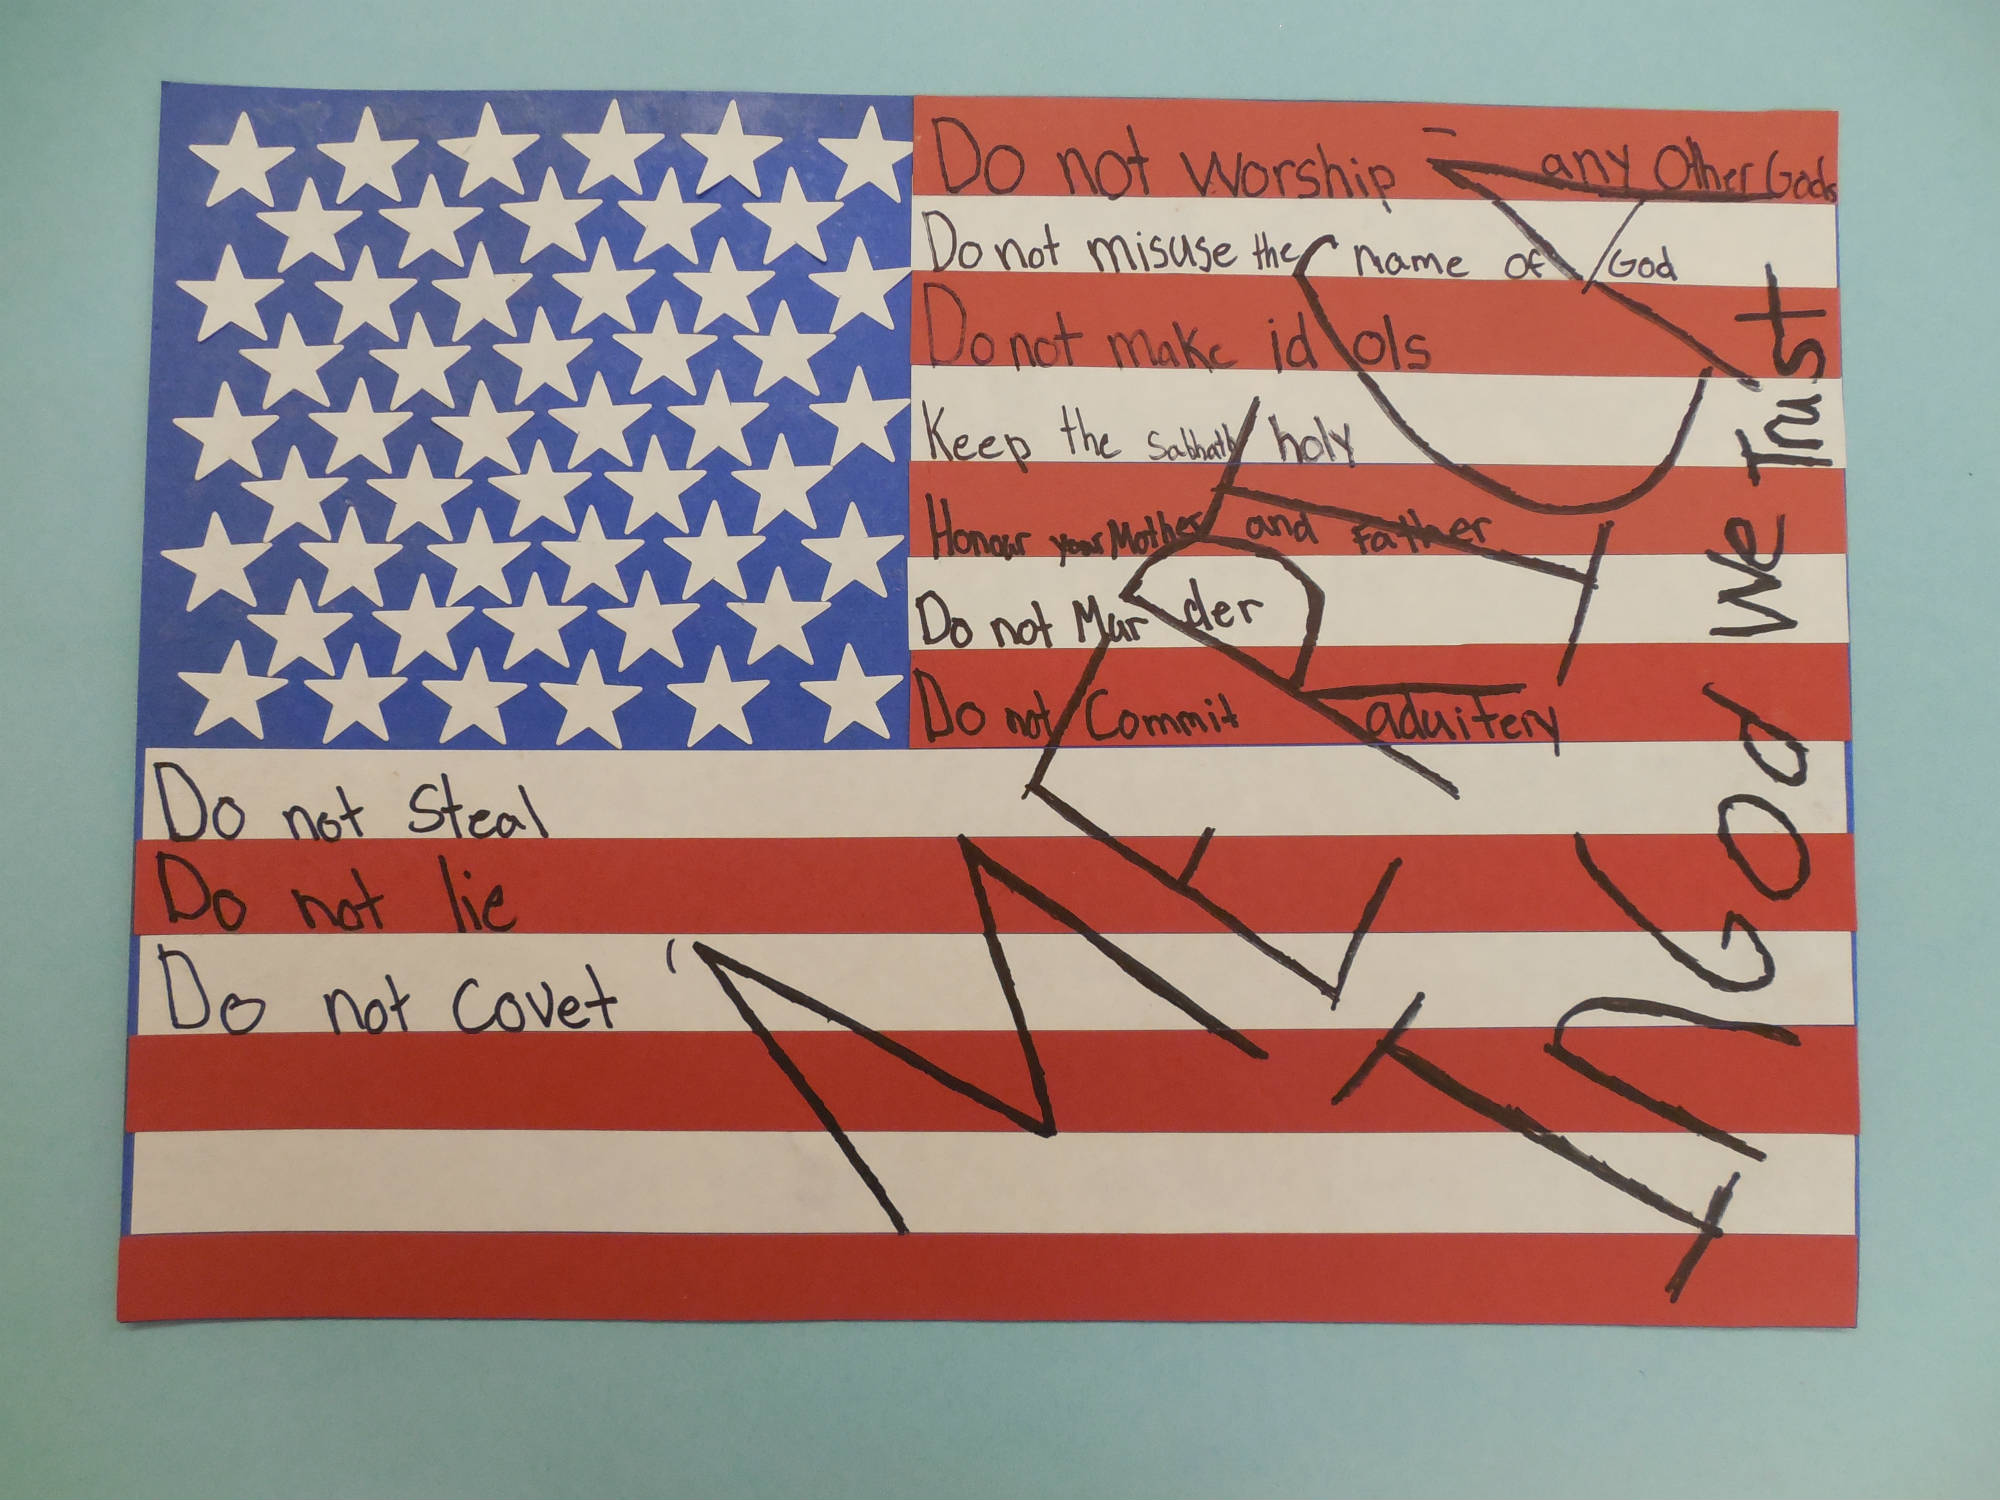 Do not worship any Other Gods
Do not misuse the name of God
Do not make idols
Keep the Sabbath holy
Honour your Mother and Father
Do not Murder
Do not Commit aduitery
Do not Steal
Do not lie
Do not Covet
'MERICA'
In God We Trust